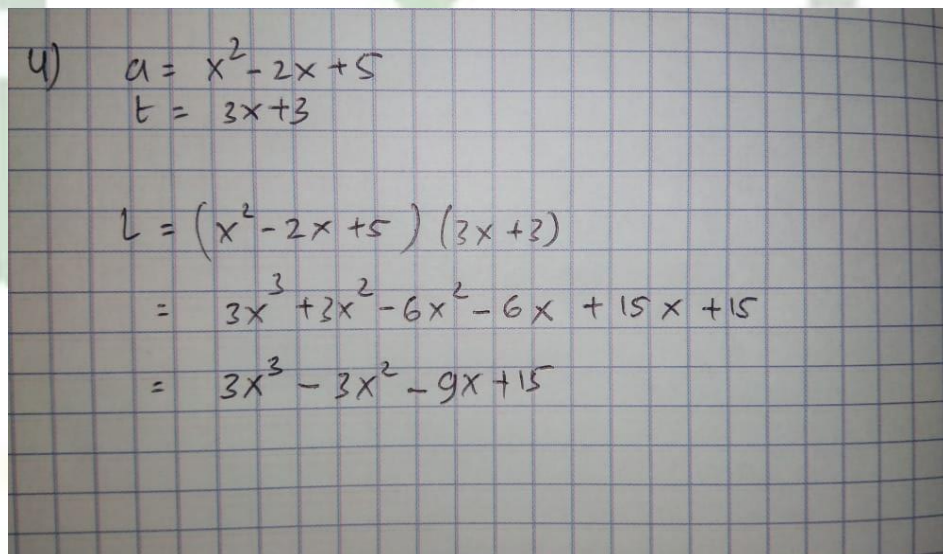 4) a = x² - 2x + 5
t = 3x + 3
L = (x² - 2x + 5) (3x + 3)
= 3x³ + 3x² - 6x² - 6x + 15x + 15
= 3x³ - 3x² - 9x + 15